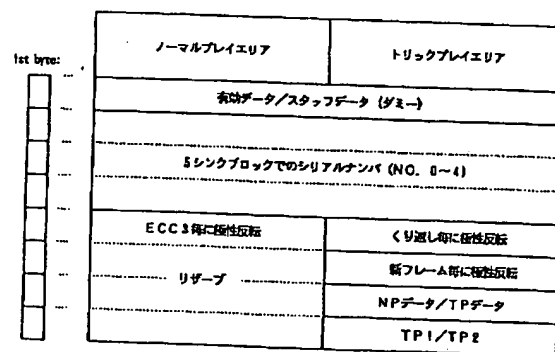 ノーマルプレイエリア
トリックプレイエリア
1st byte:
有効データ/スタッフデータ (ダミー)
5シンクブロックでのシリアルナンバ (NO. 0~4)
ECC3毎に極性反転
くり返し毎に極性反転
新フレーム毎に極性反転
リザーブ
NPデータ/TPデータ
TP1/TP2